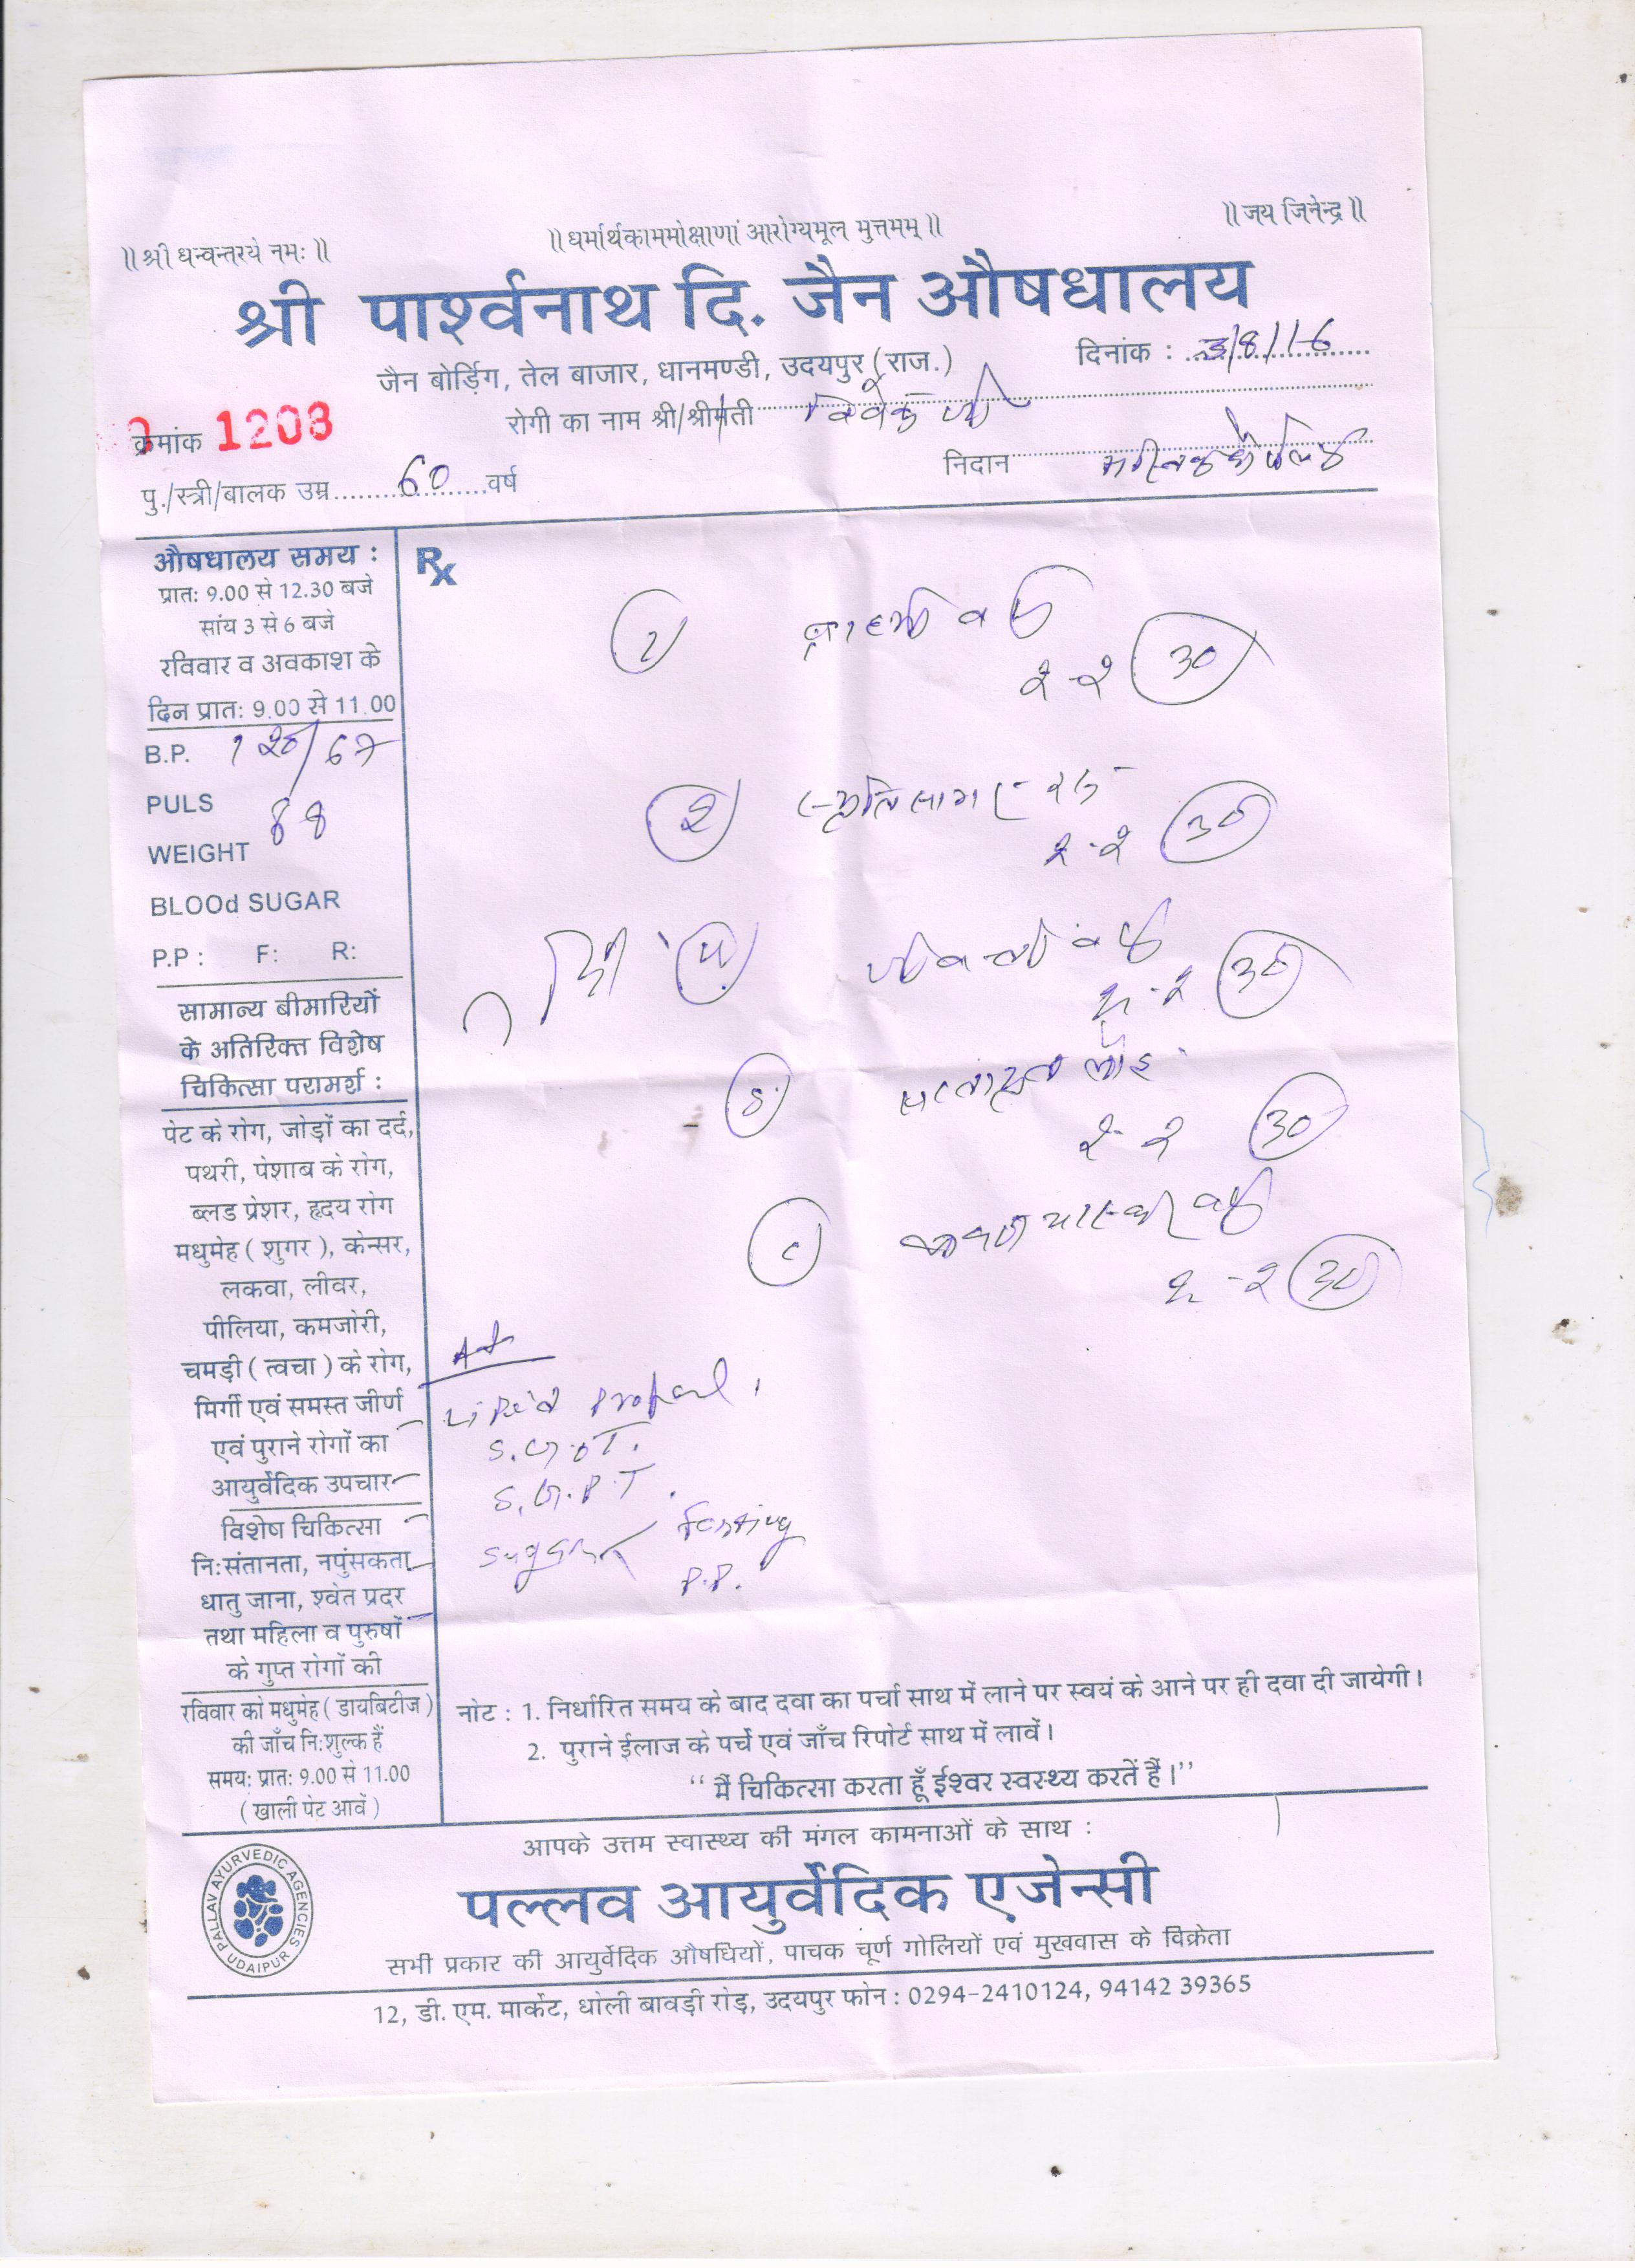 ॥ श्री धन्वन्तरये नमः ॥
॥ धर्मार्थकाममोक्षाणां आरोग्यमूल मुत्तमम् ॥
॥ जय जिनेन्द्र ॥
श्री पार्श्वनाथ दि. जैन औषधालय
जैन बोर्डिंग, तेल बाजार, धानमण्डी, उदयपुर (राज.)
दिनांक : 3/8/16
क्रमांक 1208
रोगी का नाम श्री/श्रीमती विवेक जी
पु./स्त्री/बालक उम्र 60 वर्ष
निदान
औषधालय समय :
प्रातः 9.00 से 12.30 बजे
सांय 3 से 6 बजे
रविवार व अवकाश के
दिन प्रातः 9.00 से 11.00
B.P. १२०/67
PULS
WEIGHT
BLOOd SUGAR
P.P : F: R:
सामान्य बीमारियों
के अतिरिक्त विशेष
चिकित्सा परामर्श :
पेट के रोग, जोड़ों का दर्द,
पथरी, पेशाब के रोग,
ब्लड प्रेशर, हृदय रोग
मधुमेह ( शुगर ), केन्सर,
लकवा, लीवर,
पीलिया, कमजोरी,
चमड़ी ( त्वचा ) के रोग,
मिर्गी एवं समस्त जीर्ण
एवं पुराने रोगों का
आयुर्वेदिक उपचार
विशेष चिकित्सा
निःसंतानता, नपुंसकता
धातु जाना, श्वेत प्रदर
तथा महिला व पुरुषों
के गुप्त रोगों की
रविवार को मधुमेह ( डायबिटीज )
की जाँच निःशुल्क हैं
समयः प्रातः 9.00 से 11.00
( खाली पेट आवें )
Rx
ब्राह्मी वटी
२-२ 30
२ स्मृतिसागर रस
२-२ 30
२-२ 30
लौह
२-२ 30
२-२ 30
S.G.O.T.
S.G.P.T.
Fasting
P.P.
नोट : 1. निर्धारित समय के बाद दवा का पर्चा साथ में लाने पर स्वयं के आने पर ही दवा दी जायेगी।
2. पुराने ईलाज के पर्चे एवं जाँच रिपोर्ट साथ में लावें।
“ मैं चिकित्सा करता हूँ ईश्वर स्वस्थ्य करतें हैं।”
आपके उत्तम स्वास्थ्य की मंगल कामनाओं के साथ :
PALLAV AYURVEDIC AGENCIES
UDAIPUR
पल्लव आयुर्वेदिक एजेन्सी
सभी प्रकार की आयुर्वेदिक औषधियों, पाचक चूर्ण गोलियों एवं मुखवास के विक्रेता
12, डी. एम. मार्केट, धोली बावड़ी रोड़, उदयपुर फोन : 0294-2410124, 94142 39365